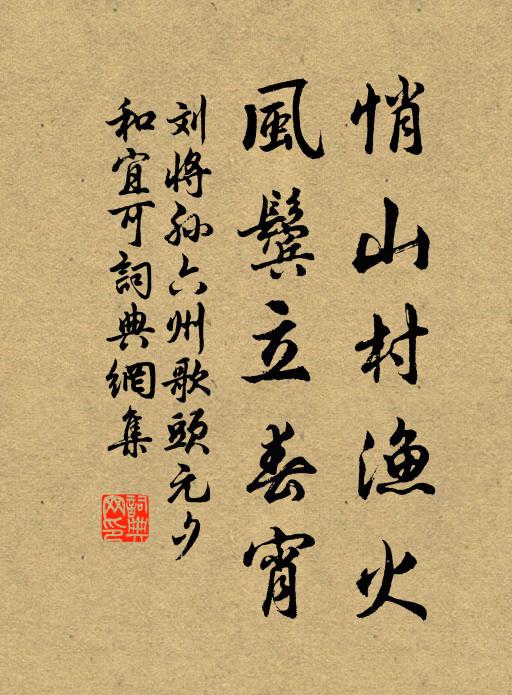 悄山村漁火
風鬢立春宵
刘將孙六州歌頭元夕
和宜可詞典網集
詞典網印